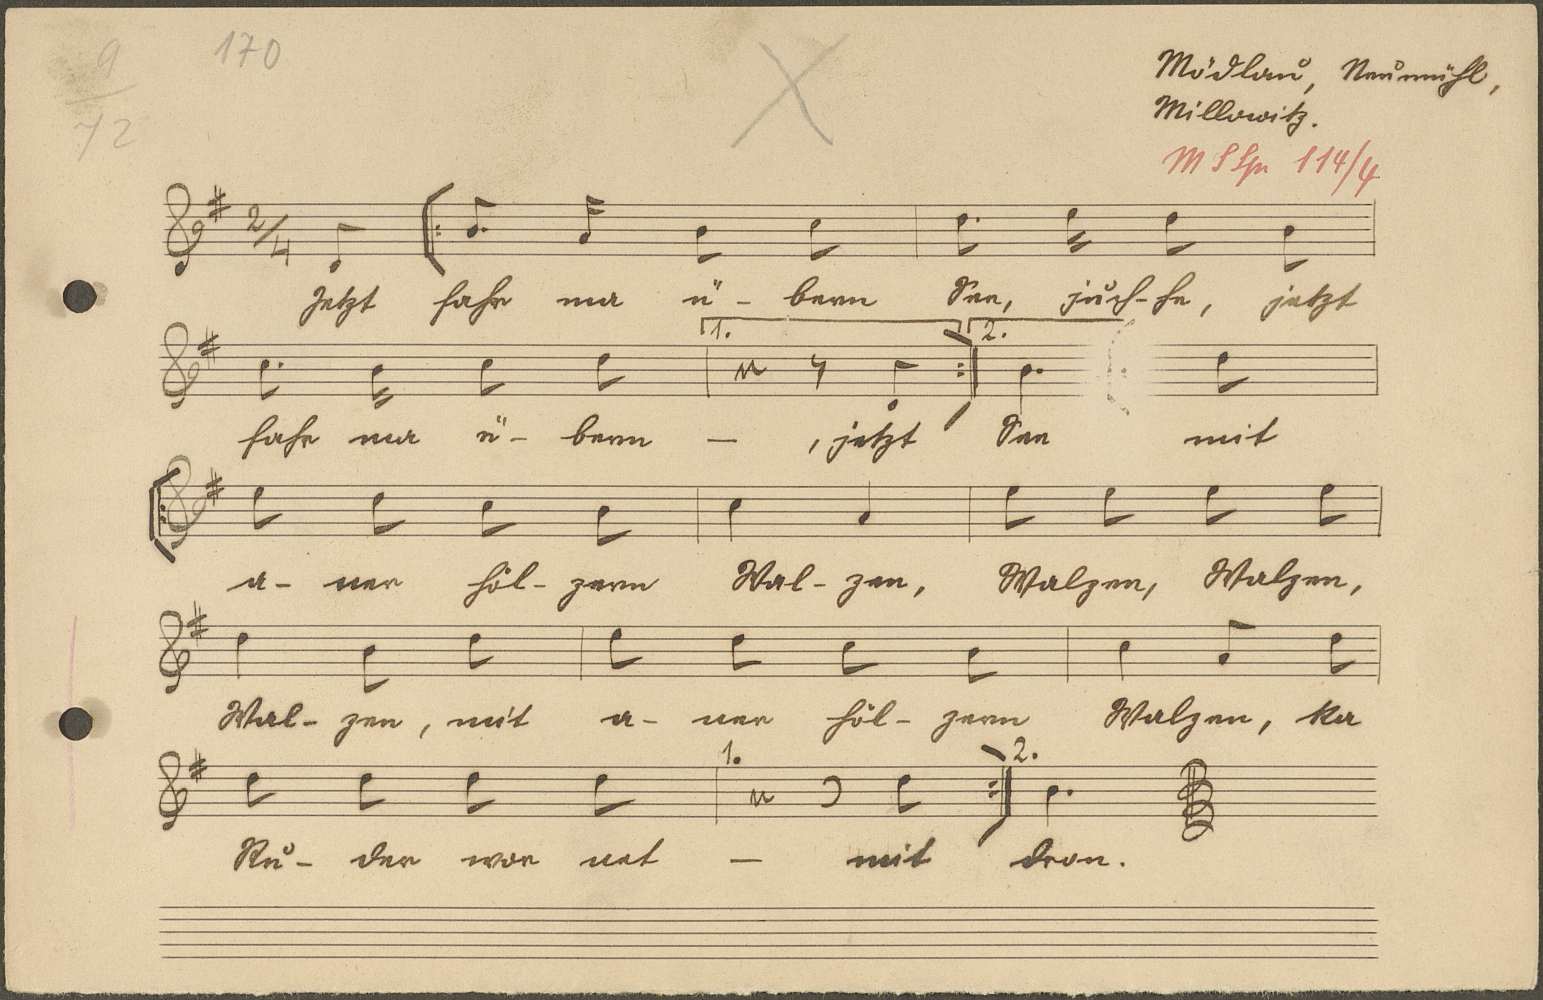 9
72
170
Mödlau, Neumühl,
Millowitz.
114/4
2/4
Jetzt fahr ma ü - bern See, juch-he, jetzt
1. 2.
fahr ma ü - bern — , jetzt See mit
a - ner höl - zern Wal - zen, Walzen, Walzen,
Wal - zen, mit a - ner höl - zern Walzen, ka
1. 2.
Ru - der wor net — mit dron.